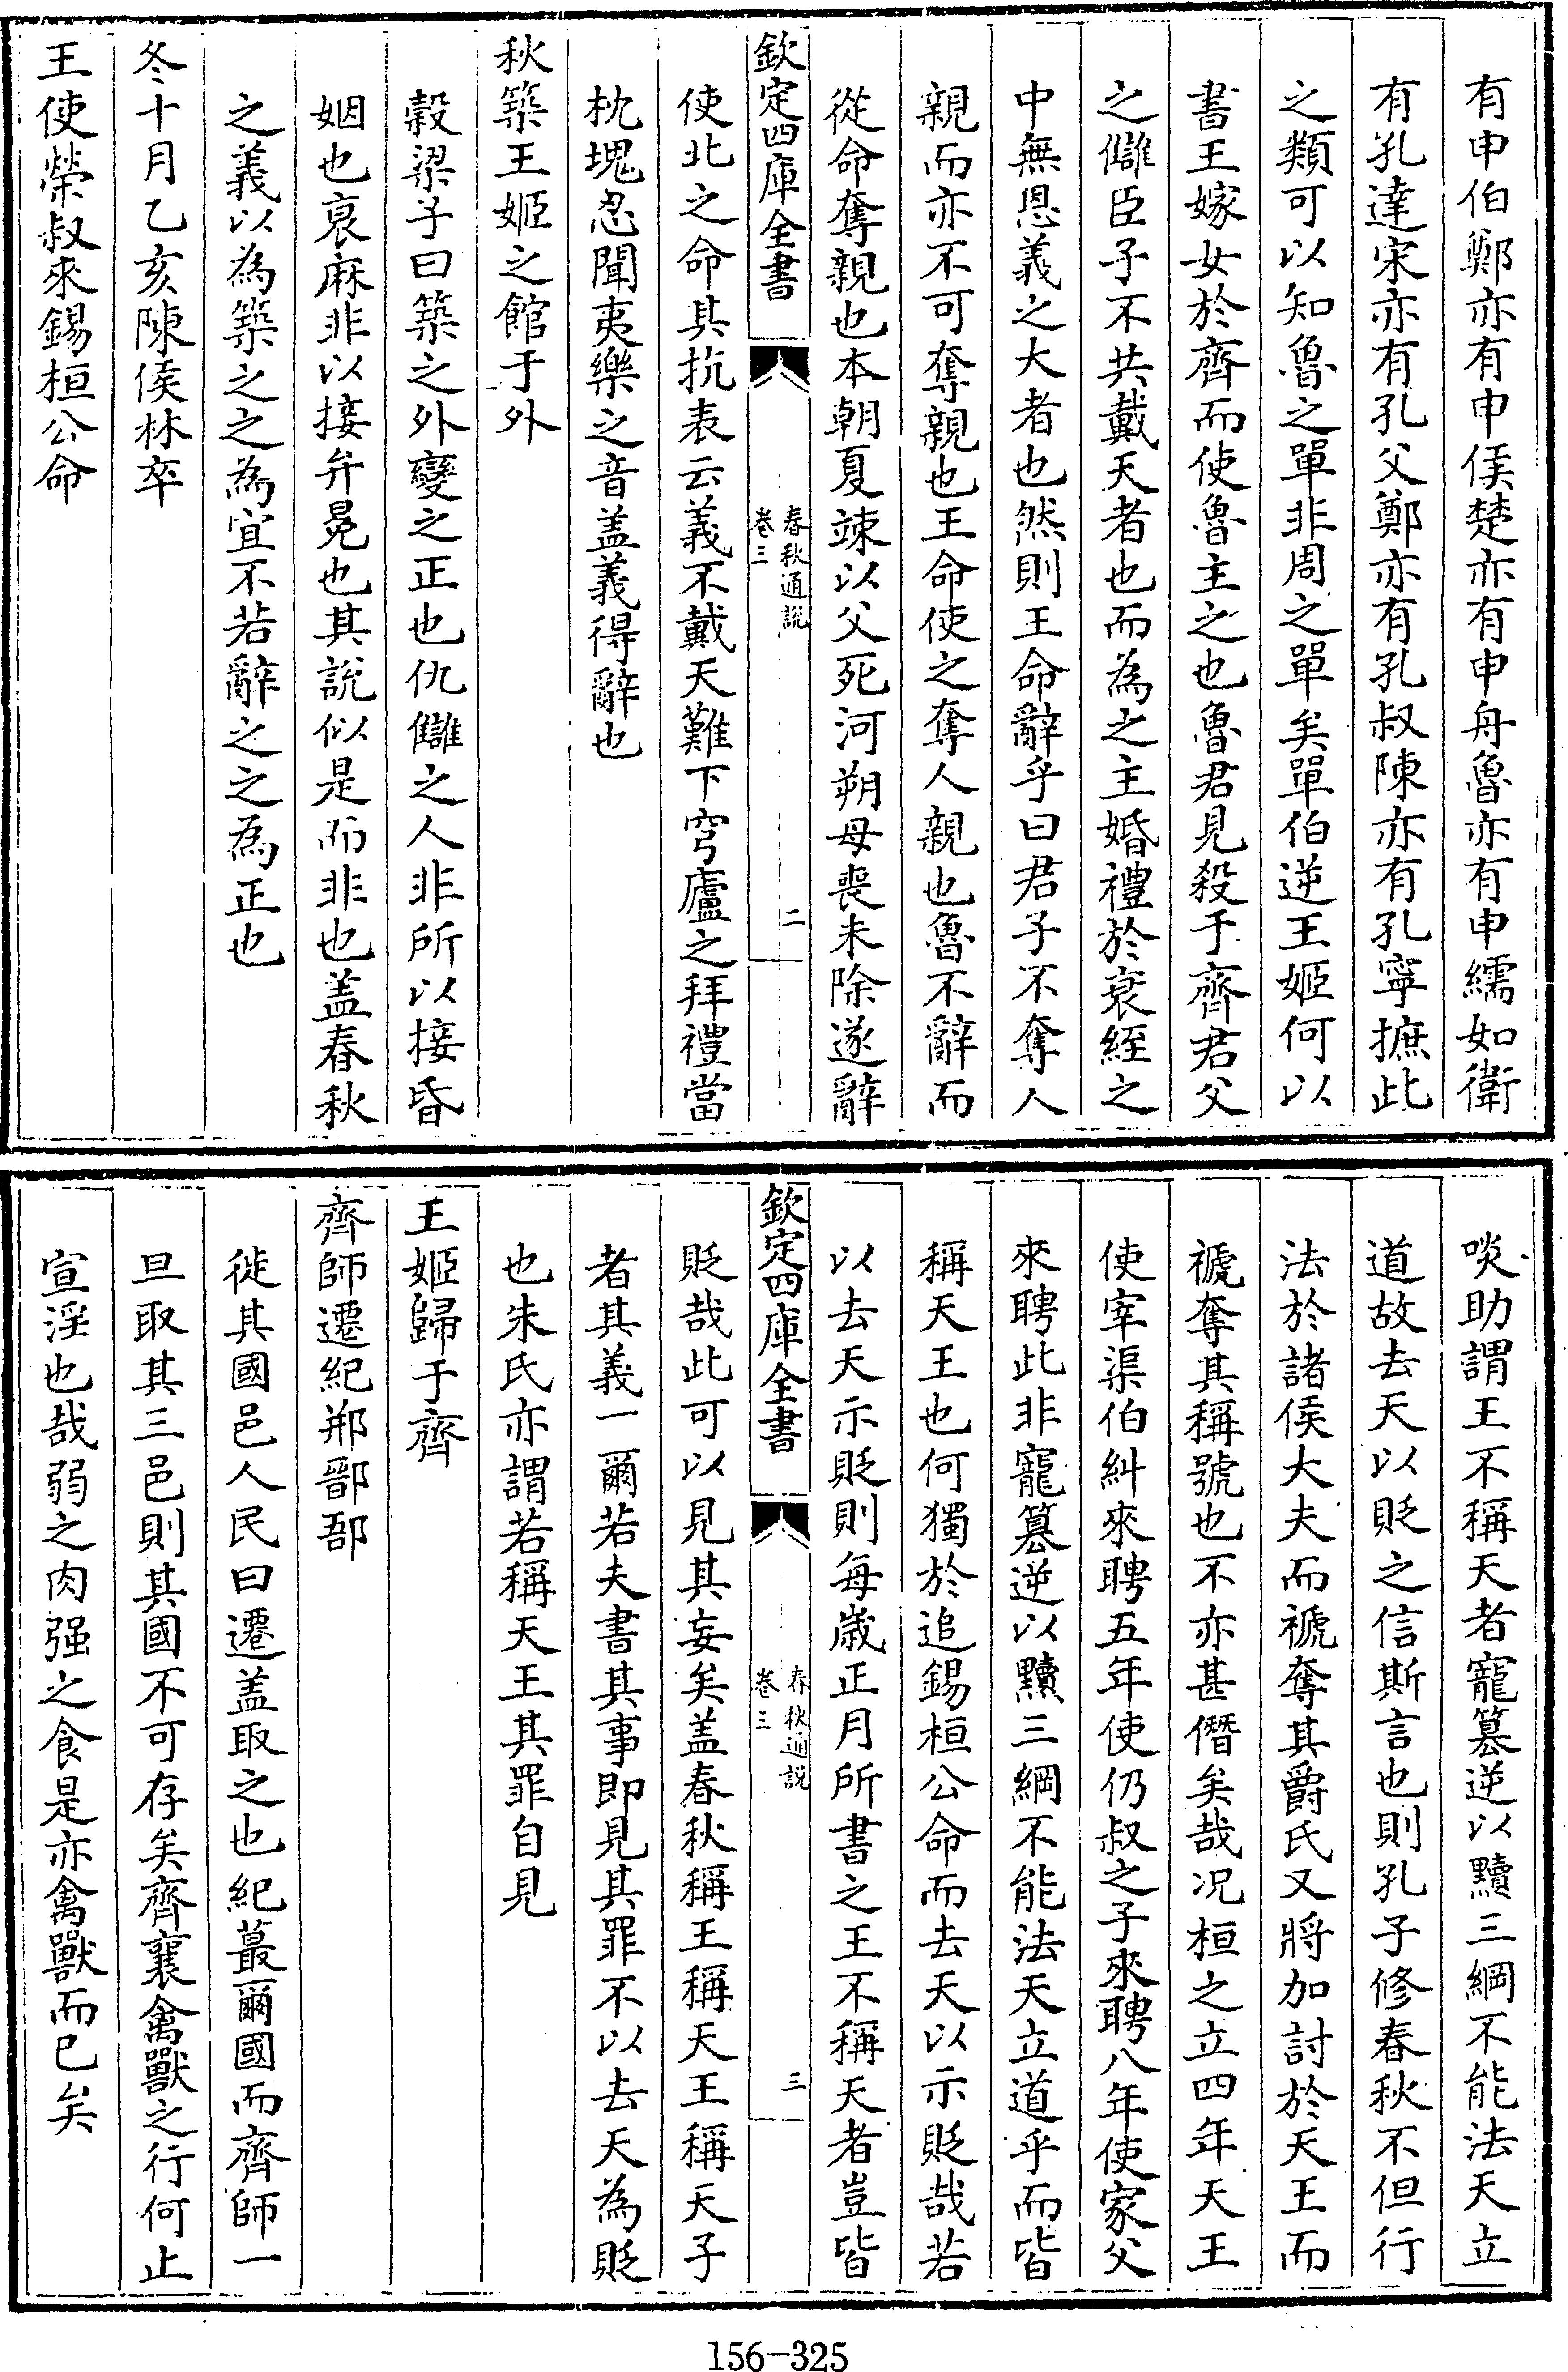 有申伯鄭亦有申侯楚亦有申舟魯亦有申繻如衛
有孔達宋亦有孔父鄭亦有孔叔陳亦有孔寧摭此
之類可以知魯之單非周之單矣單伯逆王姬何以
書王嫁女於齊而使魯主之也魯君見殺于齊君父
之讎臣子不共戴天者也而為之主婚禮於衰絰之
中無恩義之大者也然則王命辭乎曰君子不奪人
親而亦不可奪親也王命使之奪人親也魯不辭而
從命奪親也本朝夏竦以父死河朔母喪未除遂辭
欽定四庫全書
春秋通說
卷三
二
使北之命其抗表云義不戴天難下穹廬之拜禮當
枕塊忍聞夷樂之音盖義得辭也
秋築王姬之館于外
糓梁子曰築之外變之正也仇讎之人非所以接昏
姻也衰麻非以接弁冕也其說似是而非也盖春秋
之義以為築之之為宜不若辭之之為正也
冬十月乙亥陳侯林卒
王使榮叔來錫桓公命
啖助謂王不稱天者寵簒逆以黷三綱不能法天立
道故去天以貶之信斯言也則孔子修春秋不但行
法於諸侯大夫而褫奪其爵氏又將加討於天王而
褫奪其稱號也不亦甚僭矣哉况桓之立四年天王
使宰渠伯糾來聘五年使仍叔之子來聘八年使家父
來聘此非寵簒逆以黷三綱不能法天立道乎而皆
稱天王也何獨於追錫桓公命而去天以示貶哉若
以去天示貶則每歲正月所書之王不稱天者豈皆
欽定四庫全書
春秋通說
卷三
三
貶哉此可以見其妄矣盖春秋稱王稱天王稱天子
者其義一爾若夫書其事即見其罪不以去天為貶
也朱氏亦謂若稱天王其罪自見
王姬歸于齊
齊師遷紀郱鄑郚
徙其國邑人民曰遷盖取之也紀蕞爾國而齊師一
旦取其三邑則其國不可存矣齊襄禽獸之行何止
宣淫也哉弱之肉强之食是亦禽獸而已矣
156-325